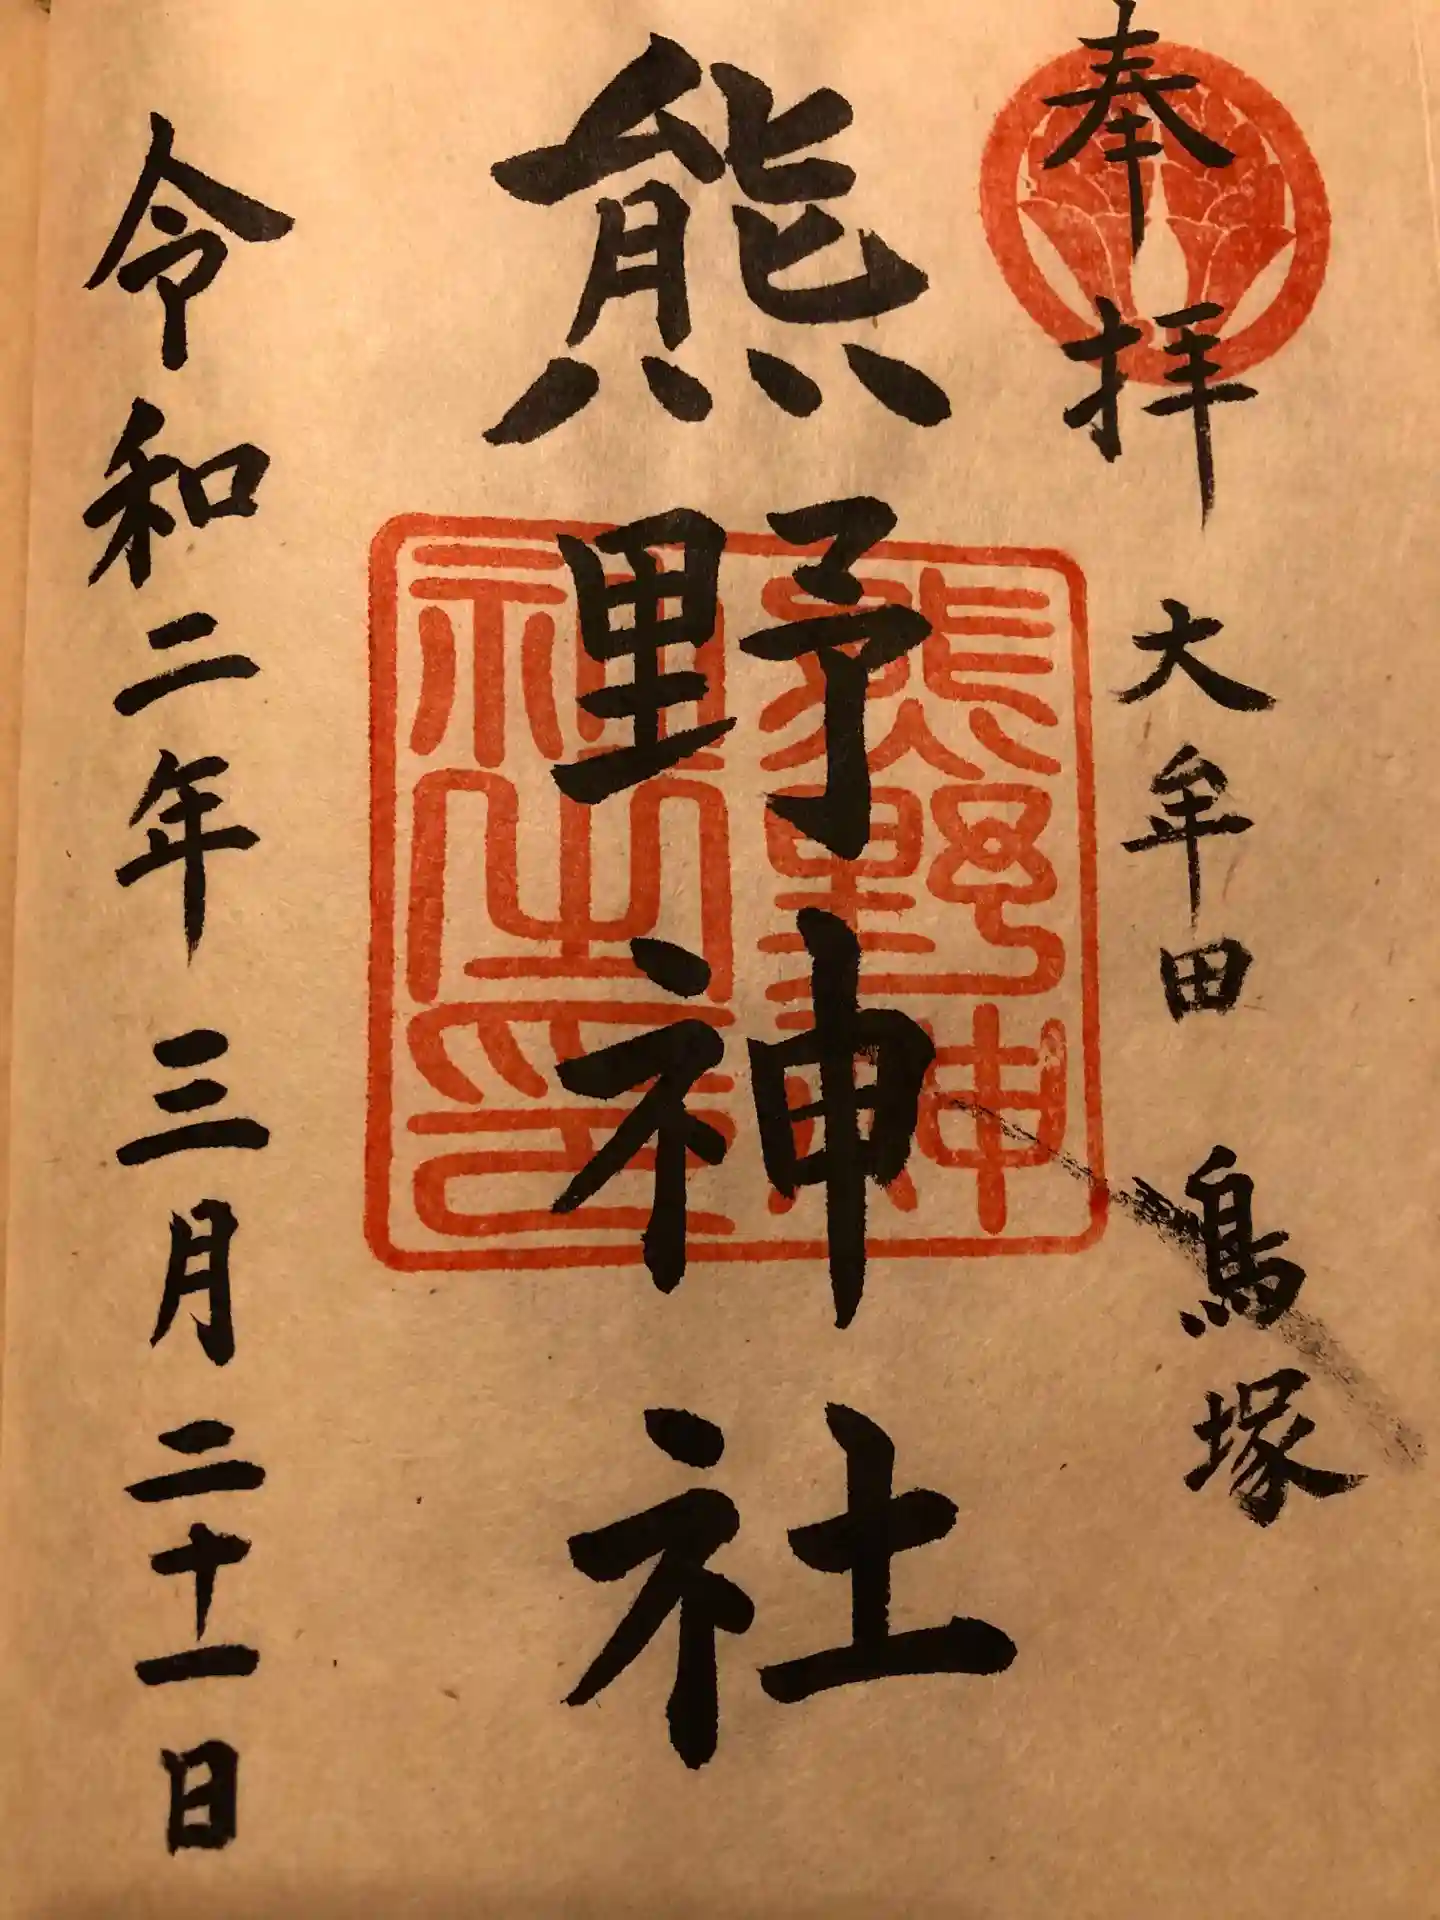 奉拝 大牟田 鳥塚
熊野神社
熊野神
社之印
令和二年三月二十一日